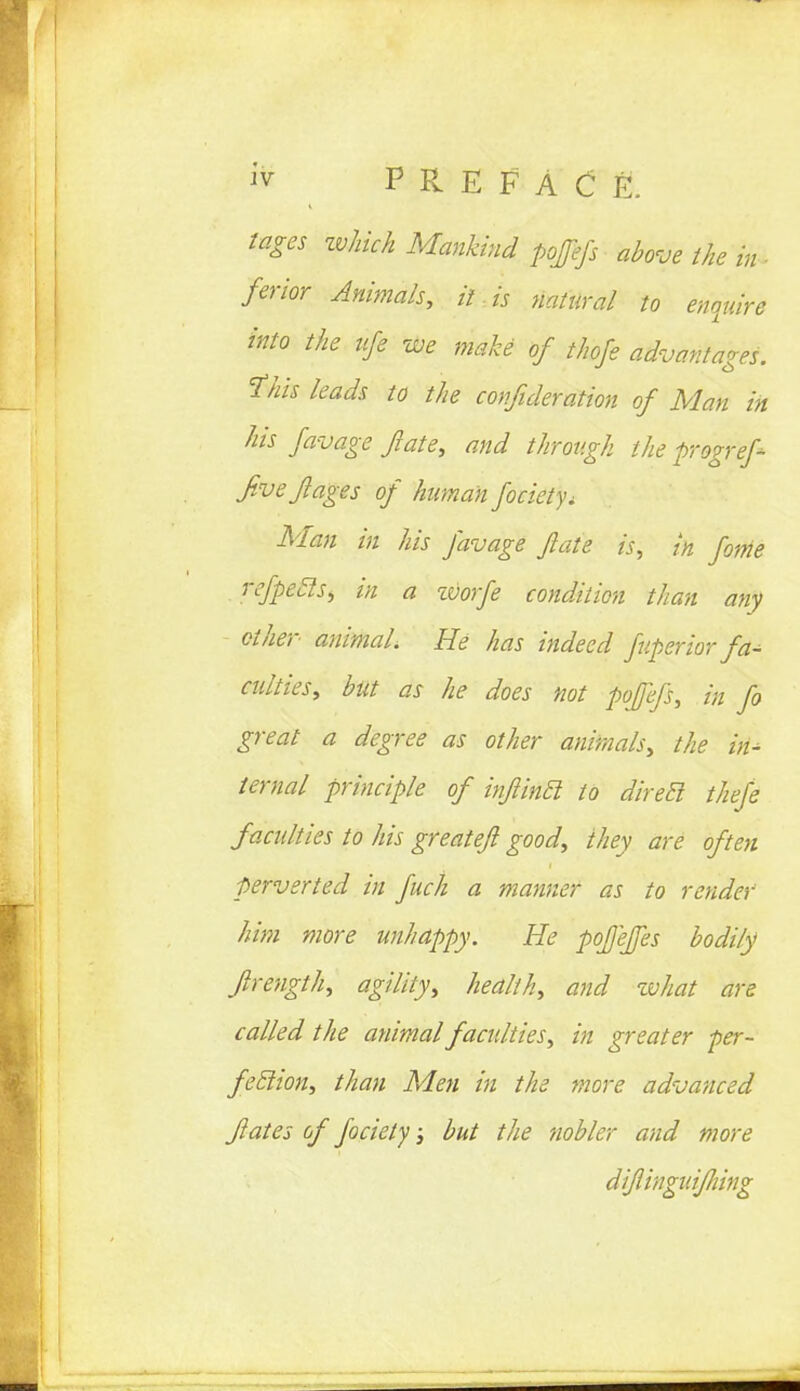 iv PREFACE.
tages which Mankind poſſeſs above the in-
ferior Animals, it is natural to enquire
into the uſe we make of thoſe advantages.
This leads to the conſideration of Man in
his ſavage ſtate, and through the progreſ-
ſive ſtages of human ſociety.
Man in his ſavage ſtate is, in ſome
reſpects, in a worſe condition than any
other animal. He has indeed ſuperior fa-
culties, but as he does not poſſeſs, in ſo
great a degree as other animals, the in-
ternal principle of inſtinct to direct theſe
faculties to his greateſt good, they are often
perverted in ſuch a manner as to render
him more unhappy. He poſſeſſes bodily
ſtrength, agility, health, and what are
called the animal faculties, in greater per-
fection, than Men in the more advanced
ſtates of ſociety; but the nobler and more
diſtinguiſhing